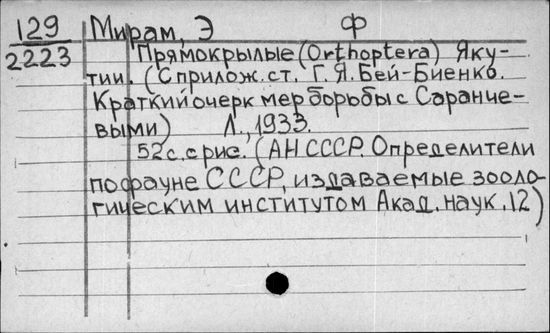 129 Мирам, Э Ф
2223 Прямокрылые (Orthoptera) Яку-
тии. (С прилож. ст. Г. Я. Бей-Биенко.
Краткий очерк мер борьбы с Саранче-
выми) Л., 1933.
52 с. с рис. (АН СССР. Определители
по фауне СССР, издаваемые зооло-
гическим институтом Акад. наук, 12)